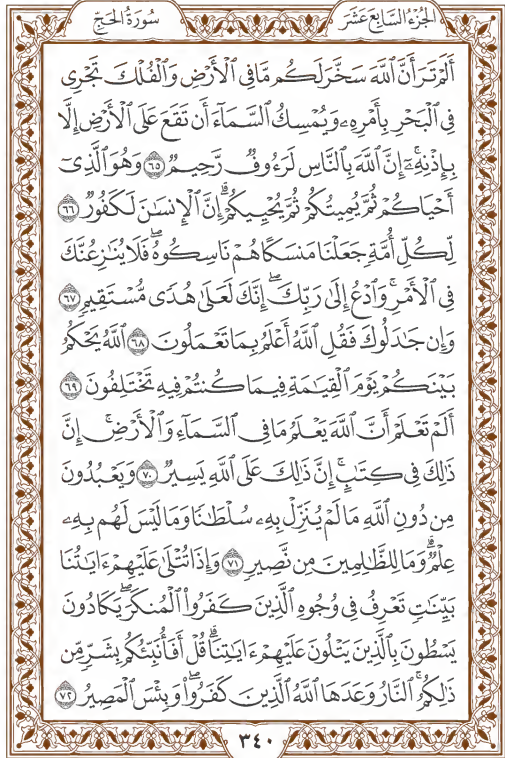 الجزء السابع عشر
سورة الحج
أَلَمْ تَرَ أَنَّ ٱللَّهَ سَخَّرَ لَكُم مَّا فِى ٱلْأَرْضِ وَٱلْفُلْكَ تَجْرِى
فِى ٱلْبَحْرِ بِأَمْرِهِۦ وَيُمْسِكُ ٱلسَّمَآءَ أَن تَقَعَ عَلَى ٱلْأَرْضِ إِلَّا
بِإِذْنِهِۦٓ ۚ إِنَّ ٱللَّهَ بِٱلنَّاسِ لَرَءُوفٌ رَّحِيمٌ ٦٥ وَهُوَ ٱلَّذِىٓ
أَحْيَاكُمْ ثُمَّ يُمِيتُكُمْ ثُمَّ يُحْيِيكُمْ ۗ إِنَّ ٱلْإِنسَٰنَ لَكَفُورٌ ٦٦
لِّكُلِّ أُمَّةٍ جَعَلْنَا مَنسَكًا هُمْ نَاسِكُوهُ ۖ فَلَا يُنَٰزِعُنَّكَ
فِى ٱلْأَمْرِ ۚ وَٱدْعُ إِلَىٰ رَبِّكَ ۖ إِنَّكَ لَعَلَىٰ هُدًى مُّسْتَقِيمٍ ٦٧
وَإِن جَٰدَلُوكَ فَقُلِ ٱللَّهُ أَعْلَمُ بِمَا تَعْمَلُونَ ٦٨ ٱللَّهُ يَحْكُمُ
بَيْنَكُمْ يَوْمَ ٱلْقِيَٰمَةِ فِيمَا كُنتُمْ فِيهِ تَخْتَلِفُونَ ٦٩
أَلَمْ تَعْلَمْ أَنَّ ٱللَّهَ يَعْلَمُ مَا فِى ٱلسَّمَآءِ وَٱلْأَرْضِ ۗ إِنَّ
ذَٰلِكَ فِى كِتَٰبٍ ۚ إِنَّ ذَٰلِكَ عَلَى ٱللَّهِ يَسِيرٌ ٧٠ وَيَعْبُدُونَ
مِن دُونِ ٱللَّهِ مَا لَمْ يُنَزِّلْ بِهِۦ سُلْطَٰنًا وَمَا لَيْسَ لَهُم بِهِۦ
عِلْمٌ ۗ وَمَا لِلظَّٰلِمِينَ مِن نَّصِيرٍ ٧١ وَإِذَا تُتْلَىٰ عَلَيْهِمْ ءَايَٰتُنَا
بَيِّنَٰتٍ تَعْرِفُ فِى وُجُوهِ ٱلَّذِينَ كَفَرُوا۟ ٱلْمُنكَرَ ۖ يَكَادُونَ
يَسْطُونَ بِٱلَّذِينَ يَتْلُونَ عَلَيْهِمْ ءَايَٰتِنَا ۗ قُلْ أَفَأُنَبِّئُكُم بِشَرٍّ مِّن
ذَٰلِكُمُ ۗ ٱلنَّارُ وَعَدَهَا ٱللَّهُ ٱلَّذِينَ كَفَرُوا۟ ۖ وَبِئْسَ ٱلْمَصِيرُ ٧٢
٣٤٠